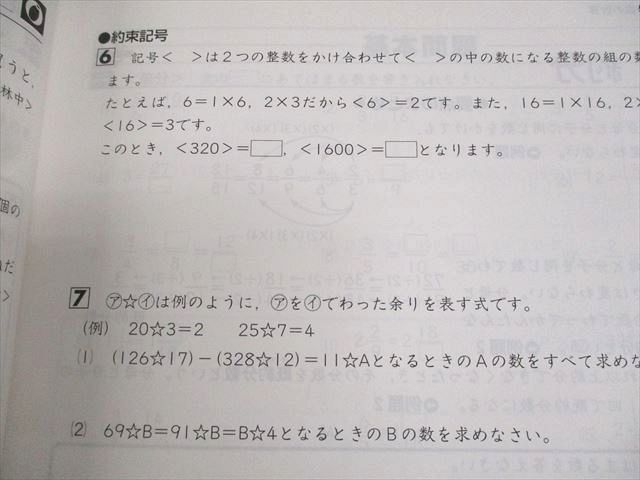 うと,
林中>
個の
だ
>
●約束記号
6 記号< >は2つの整数をかけ合わせて< >の中の数になる整数の組の数
ます。
たとえば, 6=1×6, 2×3だから<6>=2です。また, 16=1×16, 2×
<16>=3です。
このとき, <320>=□, <1600>=□となります。
7 ㋐☆㋑は例のように, ㋐を㋑でわった余りを表す式です。
(例) 20☆3=2 25☆7=4
(1) (126☆17)-(328☆12)=11☆AとなるときのAの数をすべて求めな
(2) 69☆B=91☆B=B☆4となるときのBの数を求めなさい。